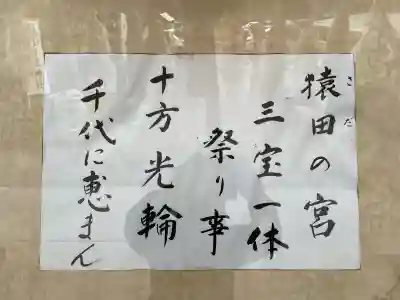 猿田の宮
さだ
三宝一体
祭り事
十方光輪
千代に恵まん